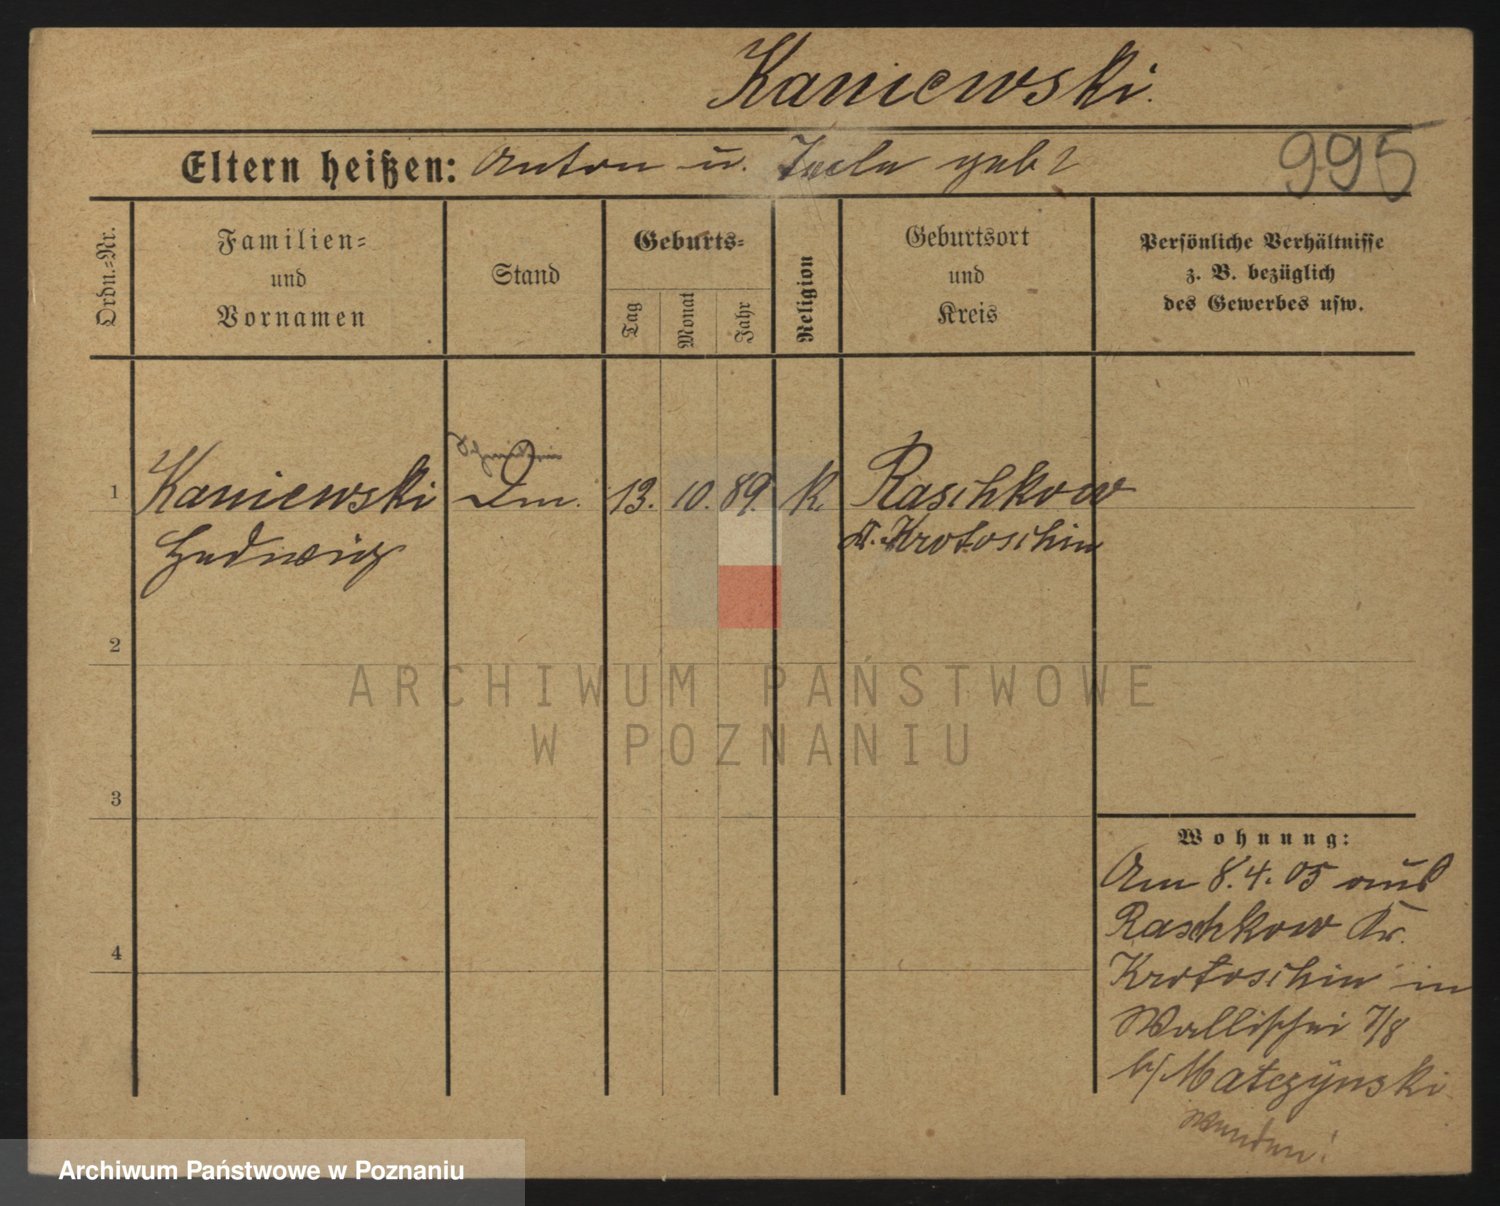 Kaniewski.
Eltern heißen: Anton u. Tecla geb ?
995
Ordn.=Nr.
Familien=
und
Vornamen
Stand
Geburts=
Tag
Monat
Jahr
Religion
Geburtsort
und
Kreis
Persönliche Verhältnisse
z. B. bezüglich
des Gewerbes usw.
1 Kaniewski Dm. 13. 10. 89. K. Raschkow
Hedwig Kr. Krotoschin
2
ARCHIWUM PAŃSTWOWE
W POZNANIU
3
Wohnung:
Am 8.4.05 aus
Raschkow Kr.
4
Krotoschin in
Wallischei 7/8
b/ Matczynski
Wenden!
Archiwum Państwowe w Poznaniu